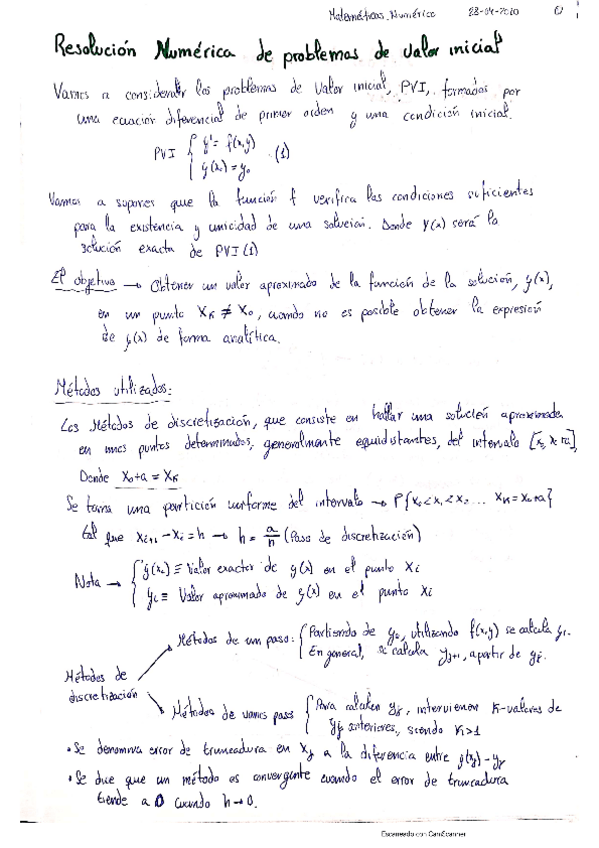 Matemáticas Numérico 23-04-2020 ①
Resolución Numérica de problemas de valor inicial
Vamos a considerar los problemas de Valor inicial, PVI, formados por
una ecuación diferencial de primer orden y una condición inicial.
PVI { y' = f(x,y)
y(x₀) = y₀ (1)
Vamos a suponer que la función f verifica las condiciones suficientes
para la existencia y unicidad de una solución. Donde y(x) será la
solución exacta de PVI (1)
El objetivo → Obtener un valor aproximado de la función de la solución, y(x),
en un punto Xₖ ≠ X₀, cuando no es posible obtener la expresión
de y(x) de forma analítica.
Métodos utilizados:
Los Métodos de discretización, que consiste en hallar una solución aproximada
en unos puntos determinados, generalmente equidistantes, del intervalo [x₀, x₀+a],
Donde X₀+a = Xₖ
Se toma una partición uniforme del intervalo → P{x₀<x₁<x₂... Xₖ=X₀+a}
tal que Xᵢ₊₁ - Xᵢ = h → h = a/n (Paso de discretización)
Nota → { y(xᵢ) ≡ Valor exacto de y(x) en el punto Xᵢ
yᵢ ≡ Valor aproximado de y(x) en el punto xᵢ
Métodos de un paso: { Partiendo de y₀, utilizando f(x,y) se calcula y₁.
En general, se calcula yⱼ₊₁, a partir de yⱼ.
Métodos de
discretización
Métodos de varios pasos { Para calcular yⱼ, intervienen K-valores de
yⱼ anteriores, siendo K>1
• Se denomina error de truncadura en xⱼ a la diferencia entre y(xⱼ) - yⱼ
• Se dice que un método es convergente cuando el error de truncadura
tiende a 0 cuando h→0.
Escaneado con CamScanner